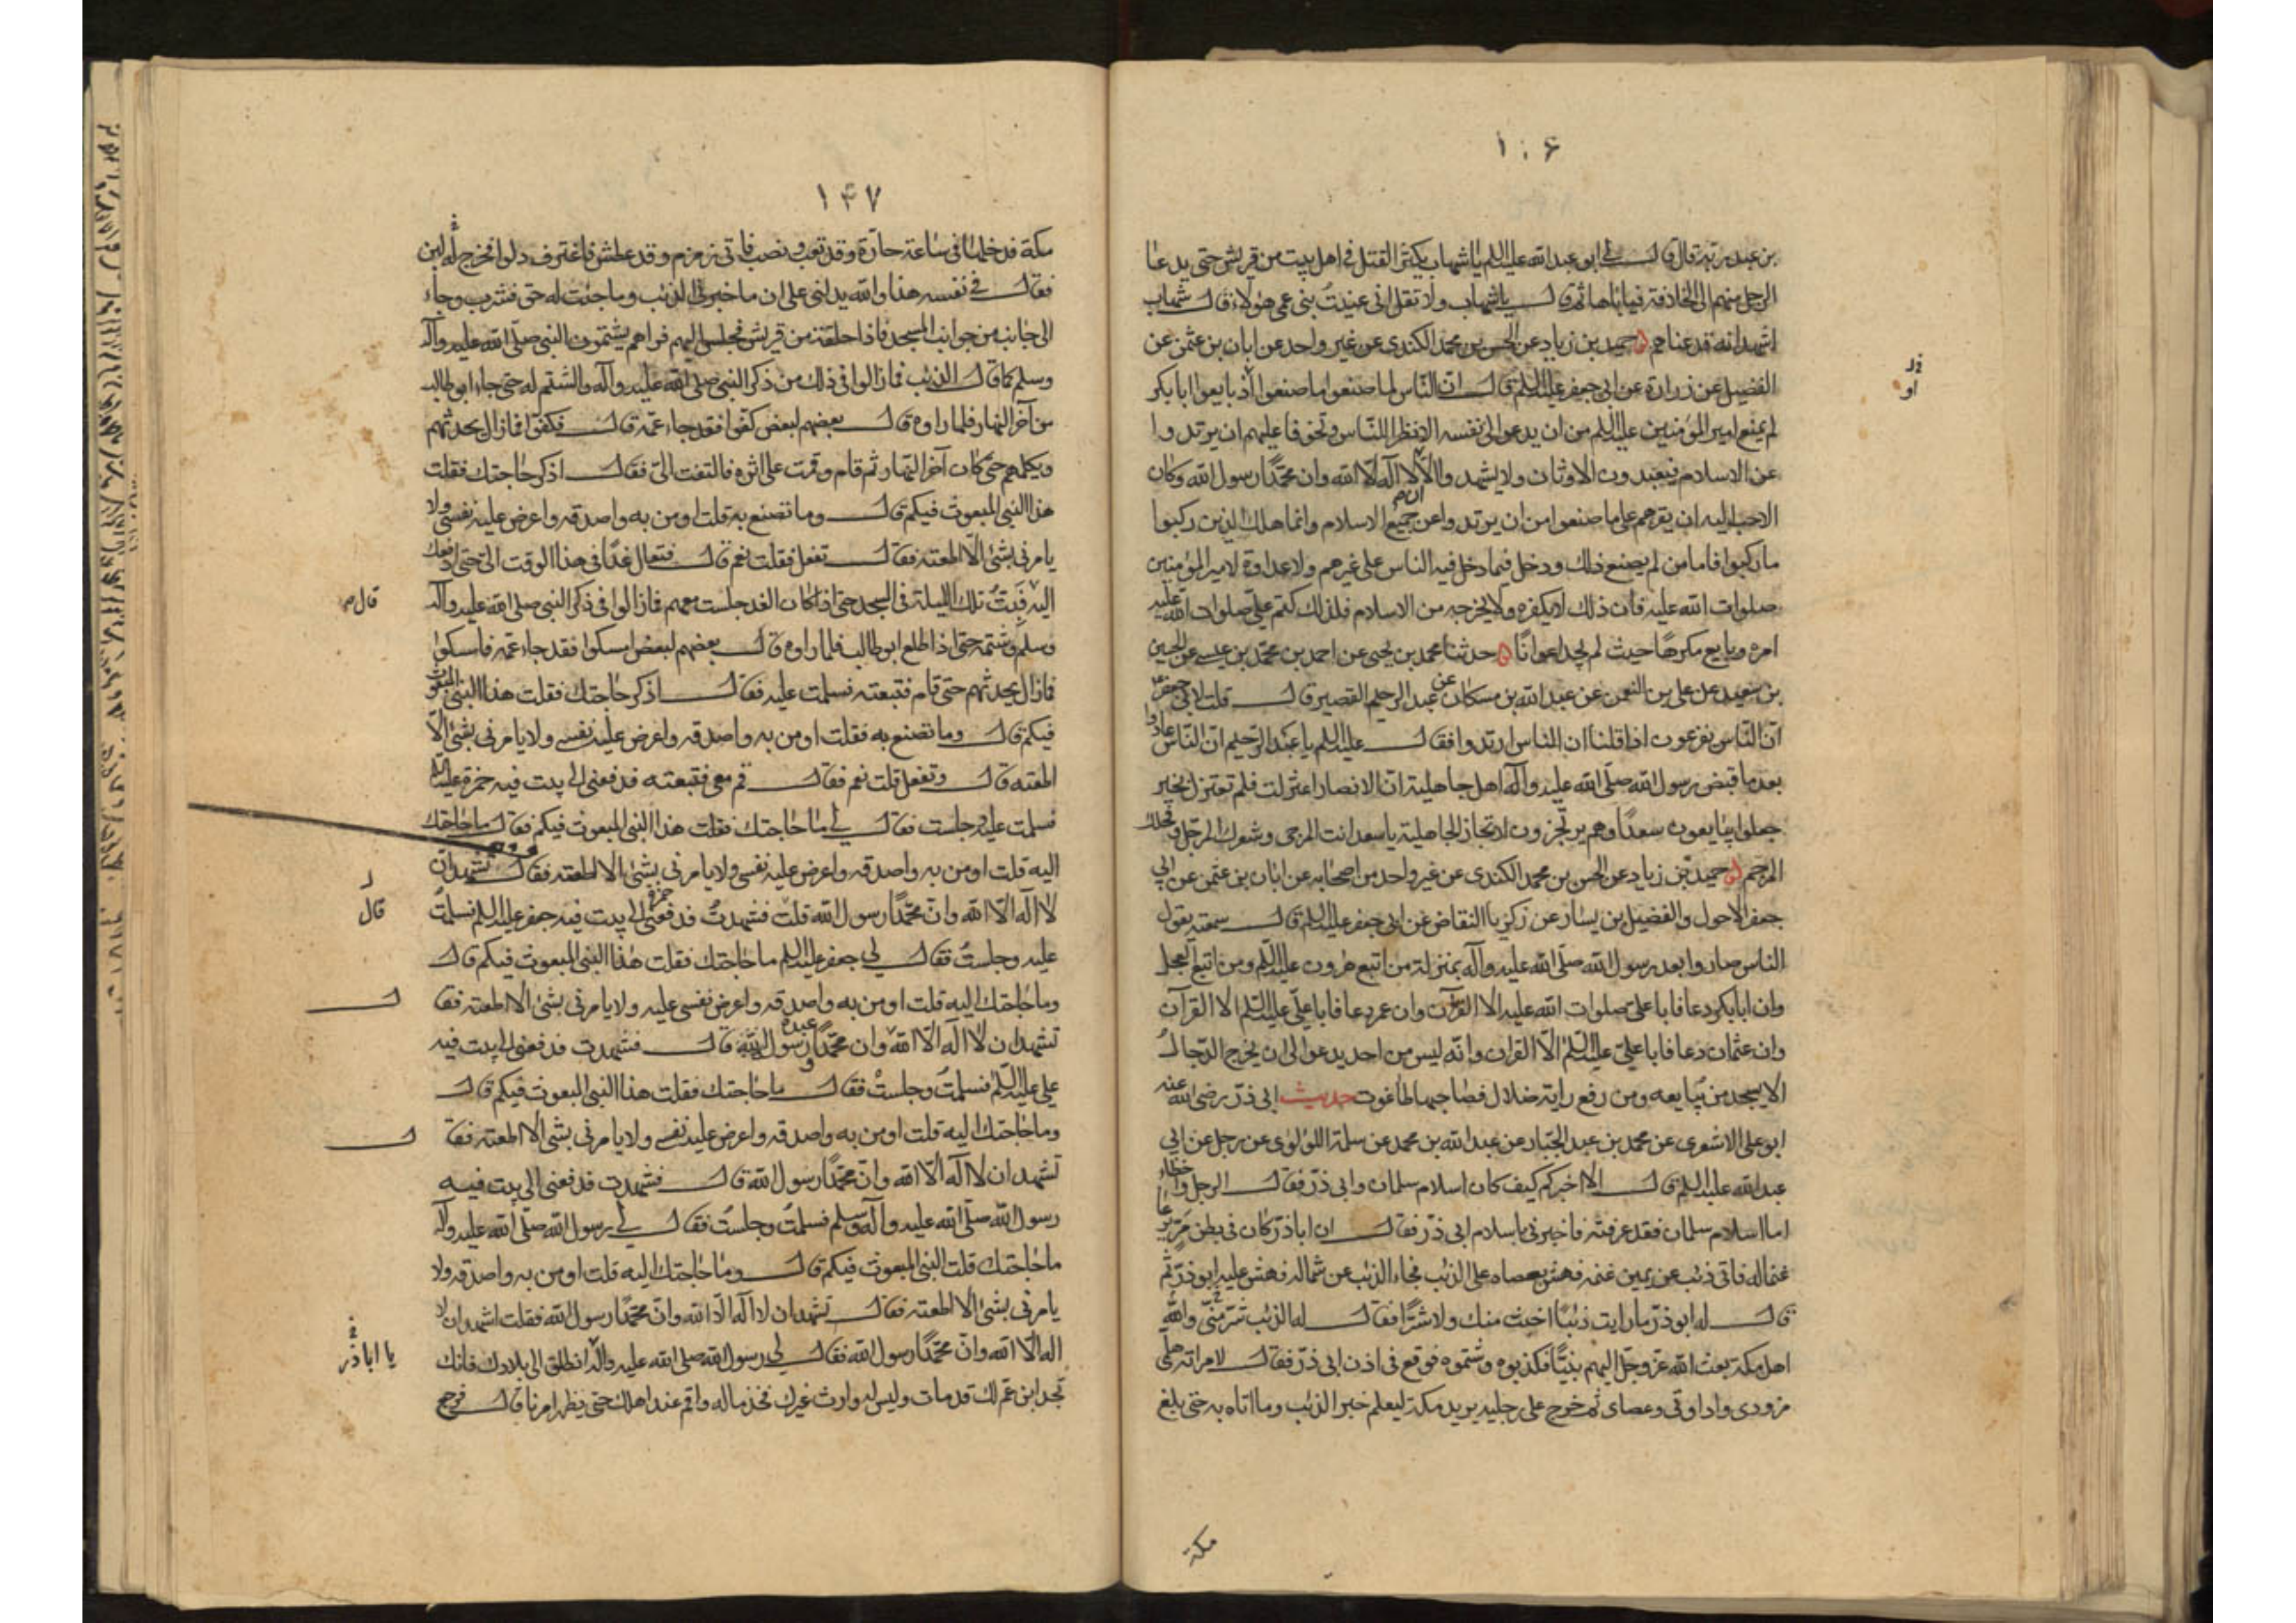 ١٠۶
بن عبد ربه قال قال لي ابو عبد الله عليه السلم يا شهاب يكثر القتل في اهل بيت من قريش حتى يدعا
الرجل منهم الى الخلافة فياباها ثم قال يا شهاب ولا تقل اني عنيت بني عمي هؤلاء قال شهاب
اشهد انه قد عناهم حميد بن زياد عن الحسن بن محمد الكندي عن غير واحد عن ابان بن عثمن عن
الفضيل عن زرارة عن ابي جعفر عليه السلم قال ان الناس لما صنعوا ما صنعوا اذ بايعوا ابا بكر
لم يمنع امير المؤمنين عليه السلم من ان يدعو الى نفسه الا نظرا للناس وتخوفا عليهم ان يرتدوا
عن الاسلام فيعبدون الاوثان ولا يشهدوا ان لا اله الا الله وان محمدا رسول الله وكان
الاحب اليه ان يقرهم على ما صنعوا من ان يرتدوا عن جميع الاسلام وانما هلك الذين ركبوا
ما ركبوا فاما من لم يصنع ذلك ودخل فيما دخل فيه الناس على غير علم ولا عداوة لامير المؤمنين
صلوات الله عليه فان ذلك لا يكفره ولا يخرجه من الاسلام فلذلك كتم علي صلوات الله عليه
امره وبايع مكرها حيث لم يجد اعوانا حدثنا محمد بن يحيى عن احمد بن محمد بن عيسى عن الحسين
بن سعيد عن علي بن النعمن عن عبد الله بن مسكان عن عبد الرحيم القصير قال قلت لابي جعفر
ان الناس يفزعون اذا قلنا ان الناس ارتدوا فقال عليه السلم يا عبد الرحيم ان الناس عادوا
بعد ما قبض رسول الله صلى الله عليه وآله اهل جاهلية ان الانصار اعتزلت فلم تعتزل بخير
جعلوا يبايعون سعدا وهم يرتجزون ارتجاز الجاهلية يا سعد انت المرجى وشعرك المرجل وفحلك
المرجم حميد بن زياد عن الحسن بن محمد الكندي عن غير واحد من اصحابه عن ابان بن عثمن عن ابي
جعفر الاحول والفضيل بن يسار عن زكريا النقاض عن ابي جعفر عليه السلم قال سمعته يقول
الناس صاروا بعد رسول الله صلى الله عليه وآله بمنزلة من اتبع هرون عليه السلم ومن اتبع العجل
وان ابا بكر دعا فابا علي صلوات الله عليه الا القرآن وان عمر دعا فابا علي عليه السلم الا القرآن
وان عثمان دعا فابا علي عليه السلم الا القران وانه ليس من احد يدعو الى ان يخرج الدجال
الا سيجد من يبايعه ومن رفع راية ضلال فصاحبها طاغوت حديث ابي ذر رضي الله عنه
ابو علي الاشعري عن محمد بن عبد الجبار عن عبد الله بن محمد عن سلمة اللؤلؤى عن رجل عن ابي
عبد الله عليه السلم قال الا اخبركم كيف كان اسلام سلمان وابي ذر فقال الرجل واخطاء
اما اسلام سلمان فقد عرفته فاخبرني باسلام ابي ذر فقال ان اباذر كان في بطن مر يرعا
غنما له فاتى ذئب عن يمين غنمه فهش بعصاه على الذئب فجاء الذئب عن شماله فهش عليه ابو ذر ثم
قال له ابو ذر ما رايت ذئبا اخبث منك ولا شرا فقال له الذئب شر مني والله
اهل مكة بعث الله عز وجل اليهم نبيا فكذبوه وشتموه فوقع في اذن ابي ذر فقال لامراته هلمي
مزودي واداوتي وعصاي ثم خرج على رجليه يريد مكة ليعلم خبر الذئب وما اتاه به حتى بلغ
مكة
١۴٧
مكة فدخلها في ساعة حارة وقد تعب ونصب فاتى زمزم وقد عطش فاغترف دلوا فخرج له لبن
فقال في نفسه هذا والله يدلني على ان ما خبرني الذئب وما جئت له حق فشرب وجاء
الى جانب من جوانب المسجد فاذا حلقة من قريش فجلس اليهم فراهم يشتمون النبي صلى الله عليه وآله
وسلم كما قال الذئب فما زالوا في ذلك من ذكر النبي صلى الله عليه وآله والشتم له حتى جاء ابو طالب
من آخر النهار فلما راوه قال بعضهم لبعض كفوا فقد جاء عمه قال فكفوا فما زال يحدثهم
ويكلمهم حتى كان آخر النهار ثم قام وقمت على اثره فالتفت الي فقال اذكر حاجتك فقلت
هذا النبي المبعوث فيكم قال وما تصنع به قلت اومن به واصدقه واعرض عليه نفسي ولا
يامرني بشئ الا اطعته فقال تفعل فقلت نعم قال فتعال غدا في هذا الوقت الي حتى ادفعك
اليه فبت تلك الليلة في المسجد حتى اذا كان الغد جلست معهم فما زالوا في ذكر النبي صلى الله عليه وآله
قال
وسلم وشتمه حتى اذا طلع ابو طالب فلما راوه قال بعضهم لبعض امسكوا فقد جاء عمه فامسكوا
فما زال يحدثهم حتى قام فتبعته فسلمت عليه فقال اذكر حاجتك فقلت هذا النبي المبعوث
فيكم قال وما تصنع به فقلت اومن به واصدقه واعرض عليه نفسي ولا يامرني بشئ الا
اطعته قال وتفعل قلت نعم فقال قم معي فتبعته فدفعني الى بيت فيه حمزة عليه السلم
فسلمت عليه وجلست فقال لي ما حاجتك فقلت هذا النبي المبعوث فيكم فقال ما حاجتك
اليه قلت اومن به واصدقه واعرض عليه نفسي ولا يامرني بشئ الا اطعته فقال تشهد ان
لا اله الا الله وان محمدا رسول الله قلت فشهدت فدفعني حمزة الى بيت فيه جعفر عليه السلم فسلمت
قال
عليه وجلست فقال لي جعفر عليه السلم ما حاجتك فقلت هذا النبي المبعوث فيكم قال
وما حاجتك اليه قلت اومن به واصدقه واعرض نفسي عليه ولا يامرني بشئ الا اطعته فقال
تشهد ان لا اله الا الله وان محمدا عبده ورسول الله قال فشهدت فدفعني الى بيت فيه
علي عليه السلم فسلمت وجلست فقال ما حاجتك فقلت هذا النبي المبعوث فيكم قال
وما حاجتك اليه قلت اومن به واصدقه واعرض عليه نفسي ولا يامرني بشئ الا اطعته فقال
تشهد ان لا اله الا الله وان محمدا رسول الله قال فشهدت فدفعني الى بيت فيه
رسول الله صلى الله عليه وآله وسلم فسلمت وجلست فقال لي رسول الله صلى الله عليه وآله
ما حاجتك قلت النبي المبعوث فيكم قال وما حاجتك اليه قلت اومن به واصدقه ولا
يامرني بشئ الا اطعته فقال تشهد ان لا اله الا الله وان محمدا رسول الله فقلت اشهد ان لا
اله الا الله وان محمدا رسول الله فقال لي رسول الله صلى الله عليه وآله انطلق الى بلادك فانك
يا اباذر
تجد ابن عم لك قد مات وليس له وارث غيرك فخذ ماله واقم عند اهلك حتى يظهر امرنا قال فرجع